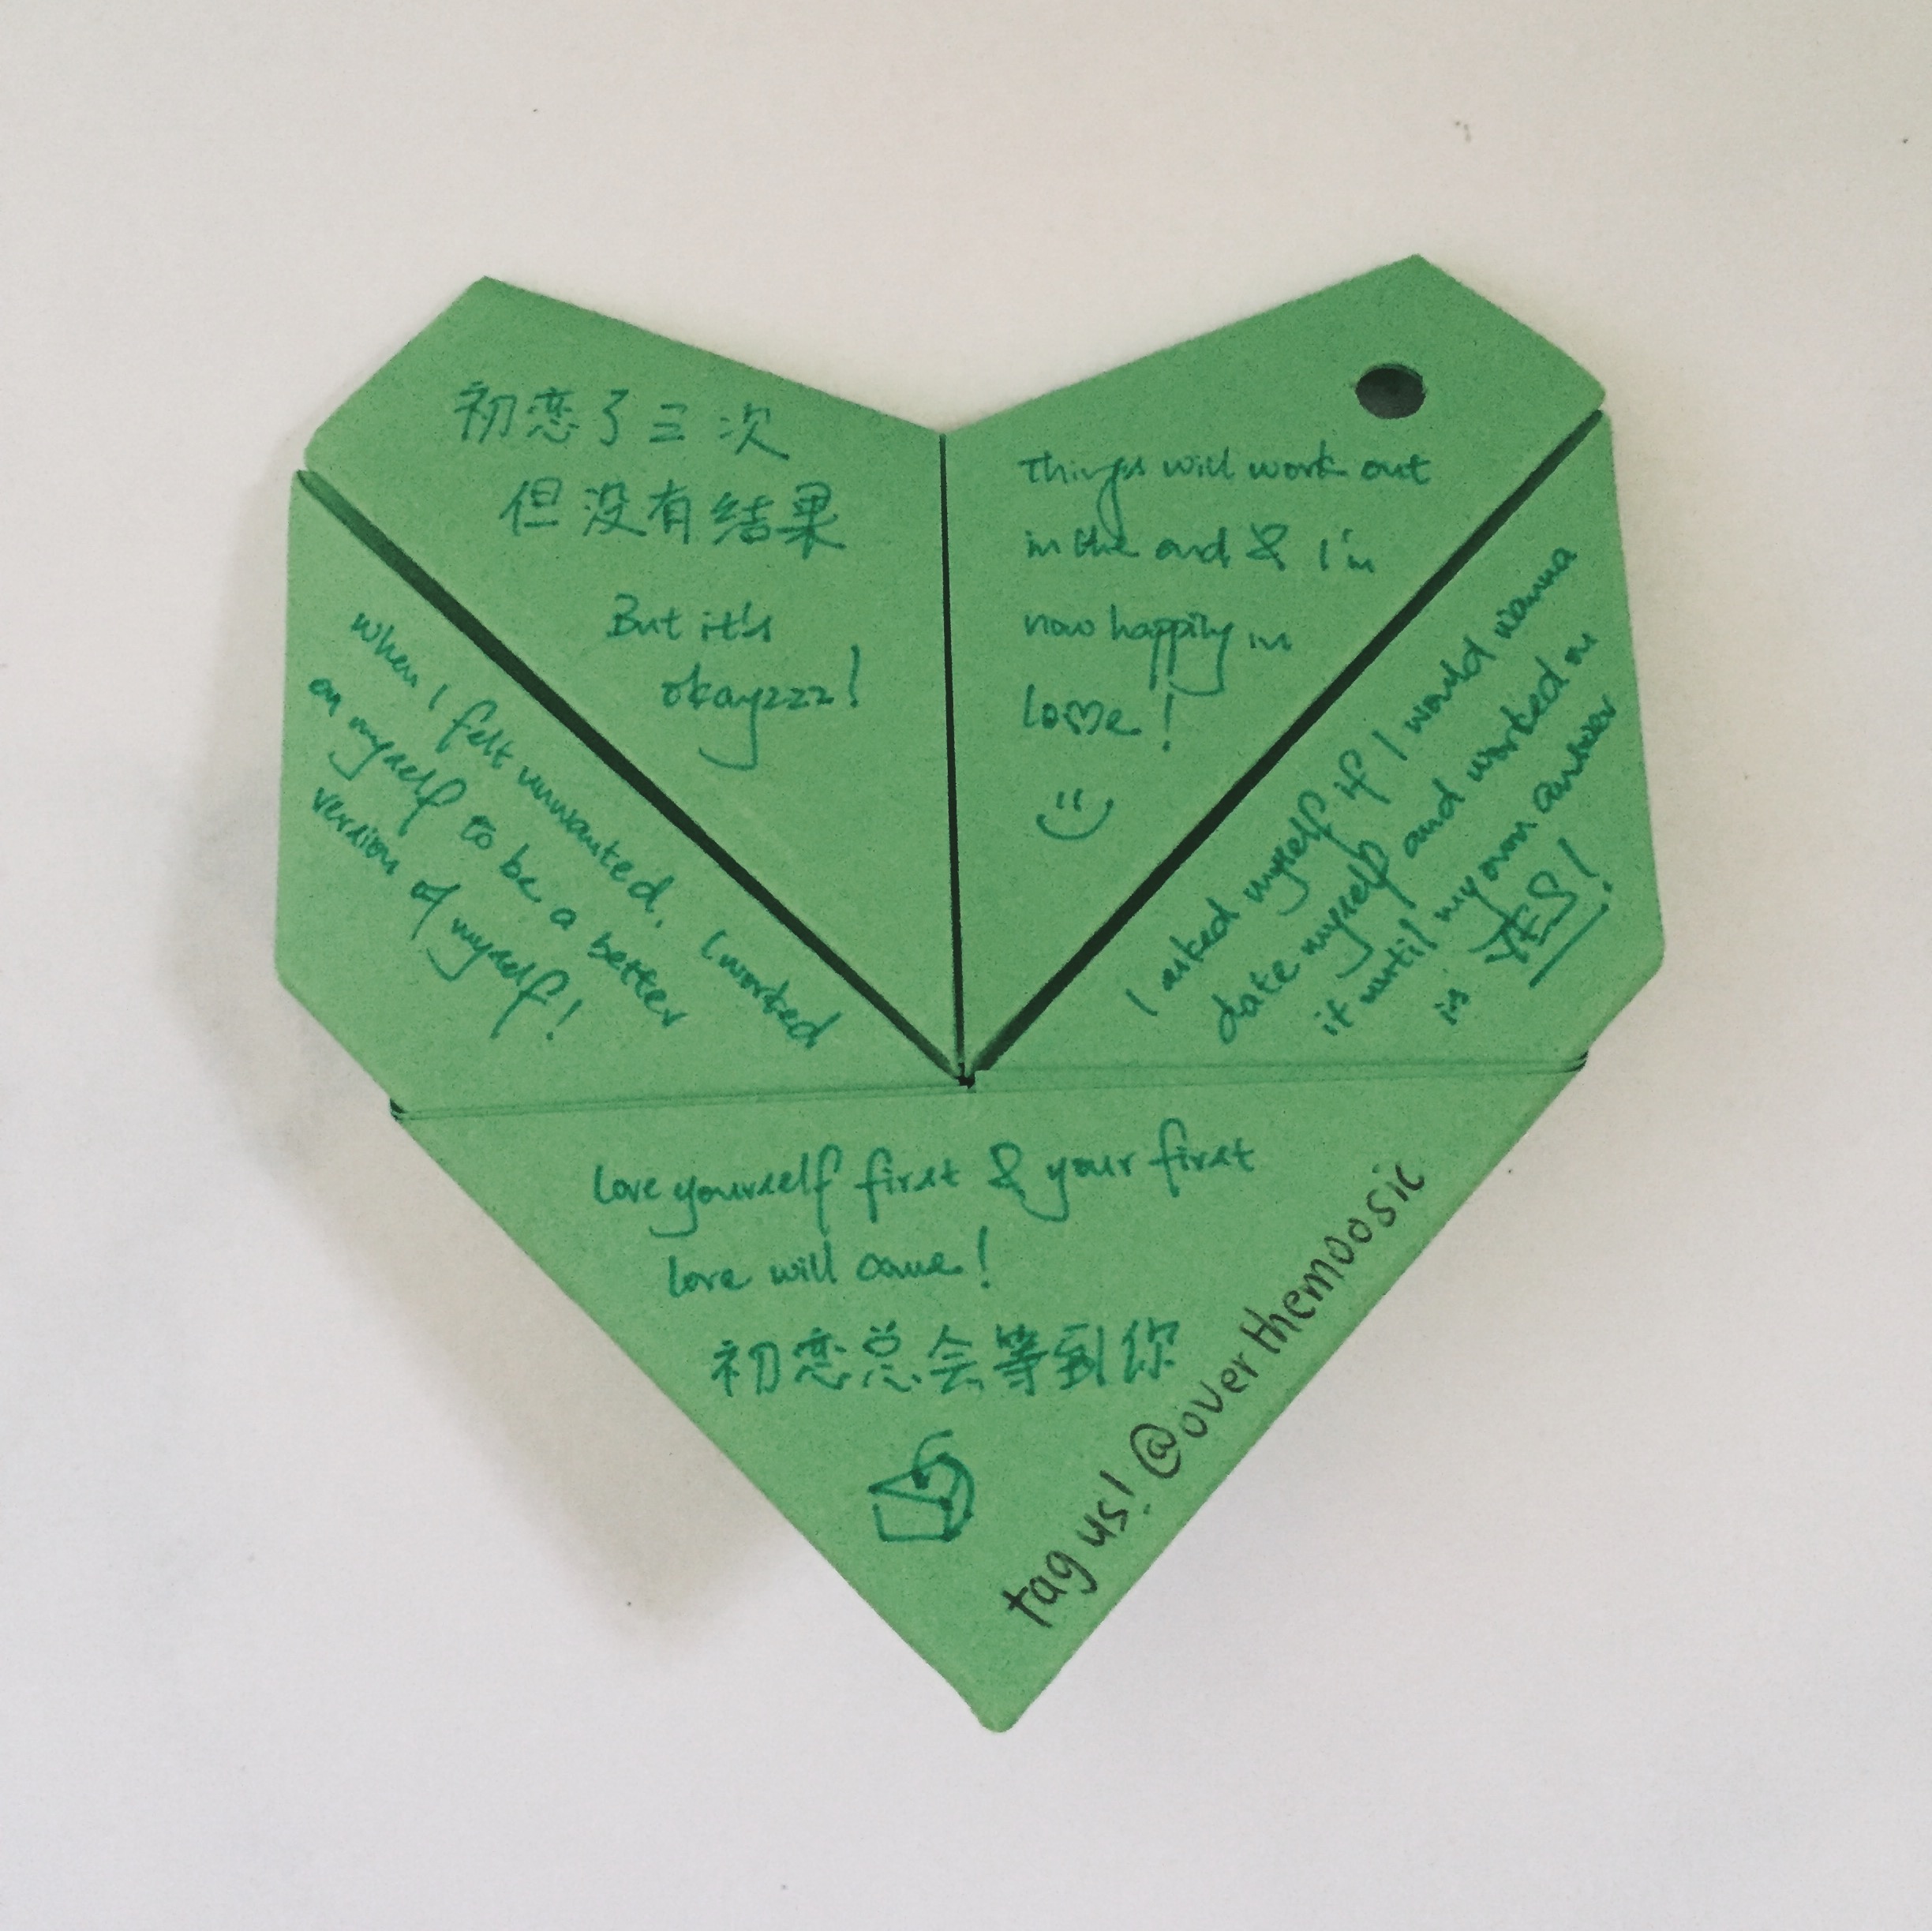 初恋了三次
但没有结果
But it's
okayzzz!
Things will work out
in the end & I'm
now happily in
lo♡e!
when I felt unwanted, I worked
on myself to be a better
version of myself!
I asked myself if I would wanna
date myself and worked on
it until my own answer
is YES!
love yourself first & your first
love will come!
初恋总会等到你
tag us! @overthemoosic